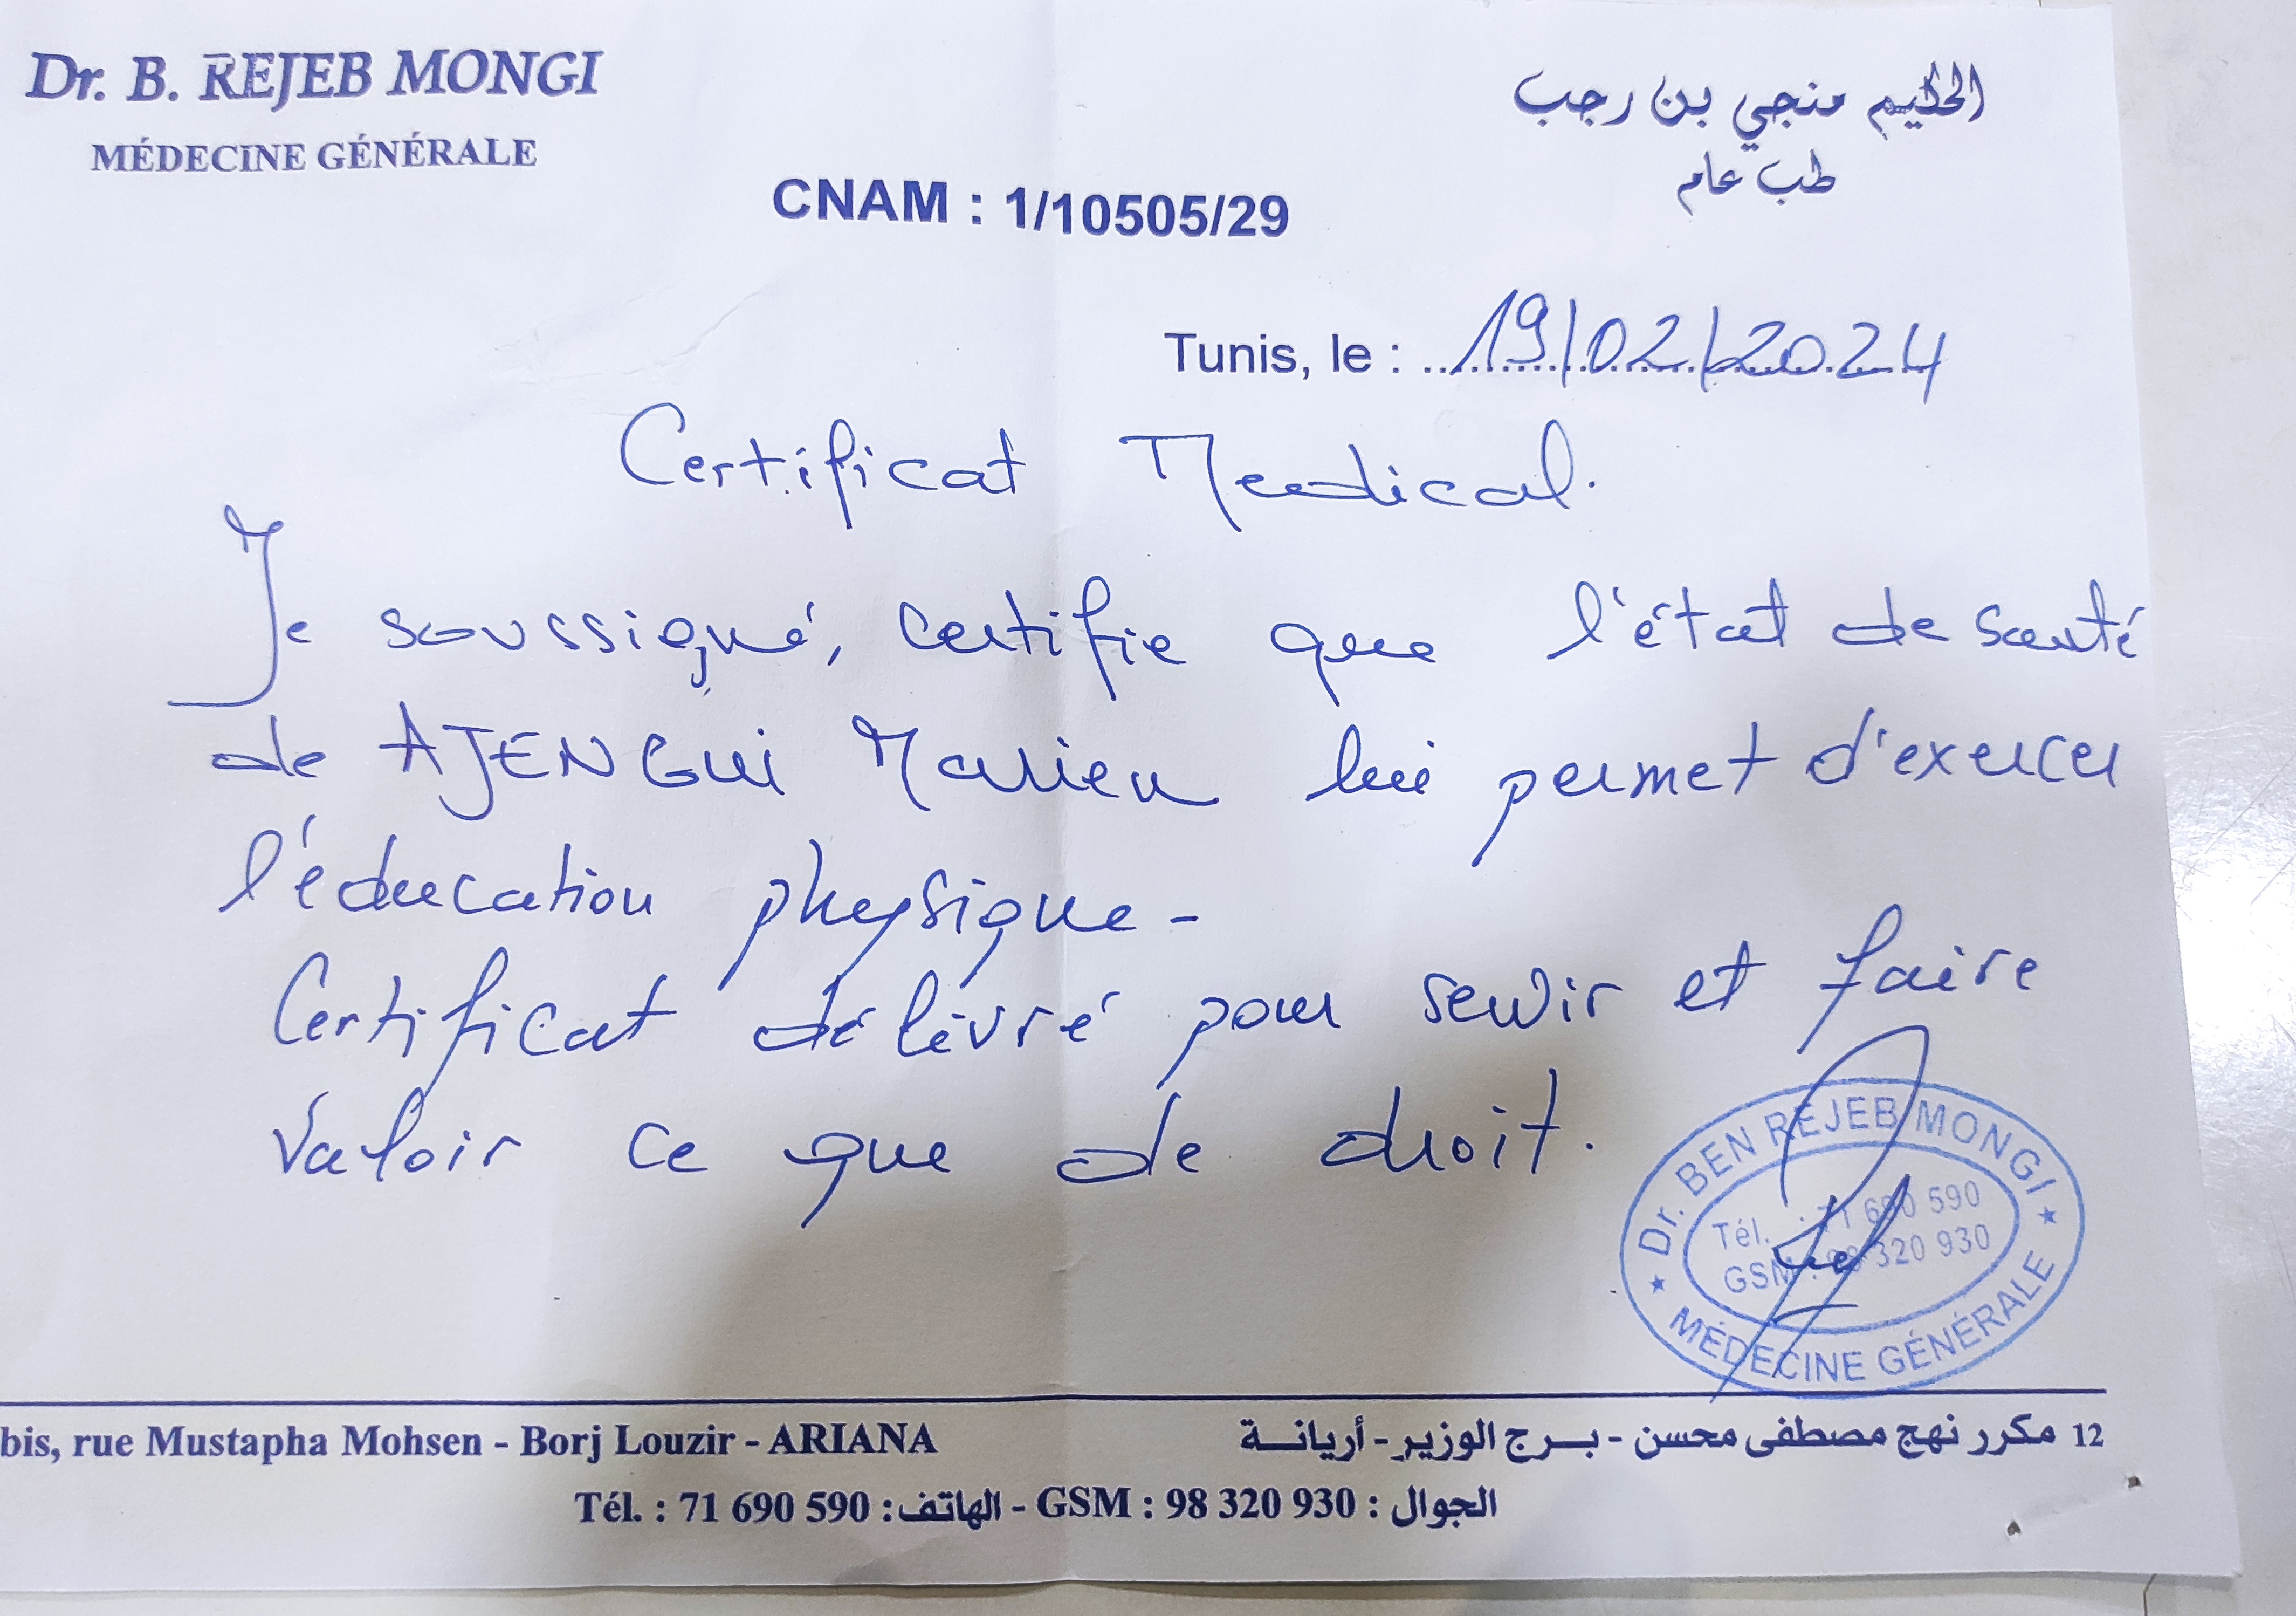 Dr. B. REJEB MONGI
MÉDECINE GÉNÉRALE
الحكيم منجي بن رجب
طب عام
CNAM : 1/10505/29
Tunis, le : 19/02/2024
Certificat Medical.
Je soussigné, certifie que l'état de santé
de AJENGUI Mariem lui permet d'exercer
l'éducation physique -
Certificat délivré pour servir et faire
valoir ce que de droit.
Dr. BEN REJEB MONGI
Tél. : 71 690 590
GSM : 98 320 930
MÉDECINE GÉNÉRALE
bis, rue Mustapha Mohsen - Borj Louzir - ARIANA
12 مكرر نهج مصطفى محسن - بـرج الوزير - أريانة
Tél. : 71 690 590 :الهاتف - GSM : 98 320 930 : الجوال